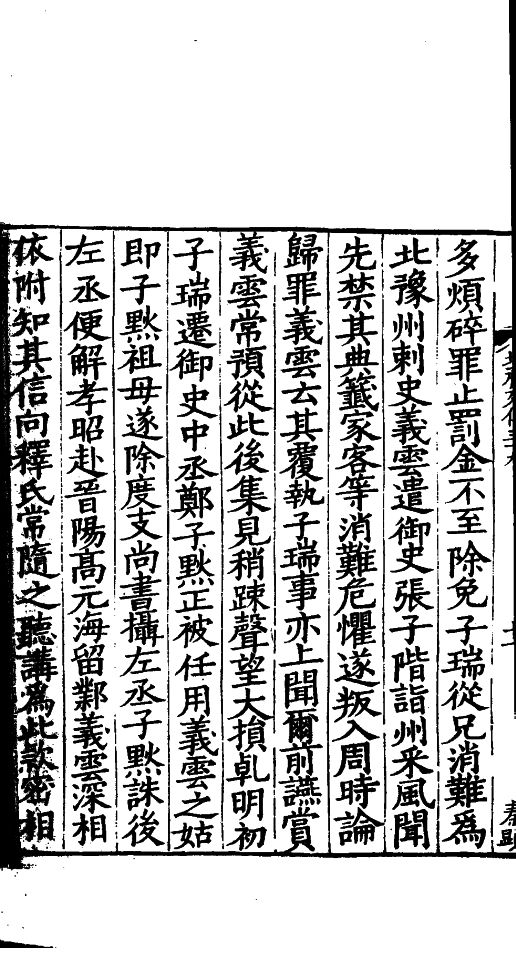 多煩碎罪止罰金不至除免子瑞從兄消難為
北豫州刺史義雲遣御史張子階詣州采風聞
先禁其典籤家客等消難危懼遂叛入周時論
歸罪義雲云其覆執子瑞事亦上聞爾前讌賞
義雲常預從此後集見稍踈聲望大損乹明初
子瑞遷御史中丞鄭子黙正被任用義雲之姑
即子黙祖母遂除度支尚書攝左丞子黙誅後
左丞便解孝昭赴晉陽髙元海留鄴義雲深相
依附知其信向釋氏常隨之聽講為此款密相